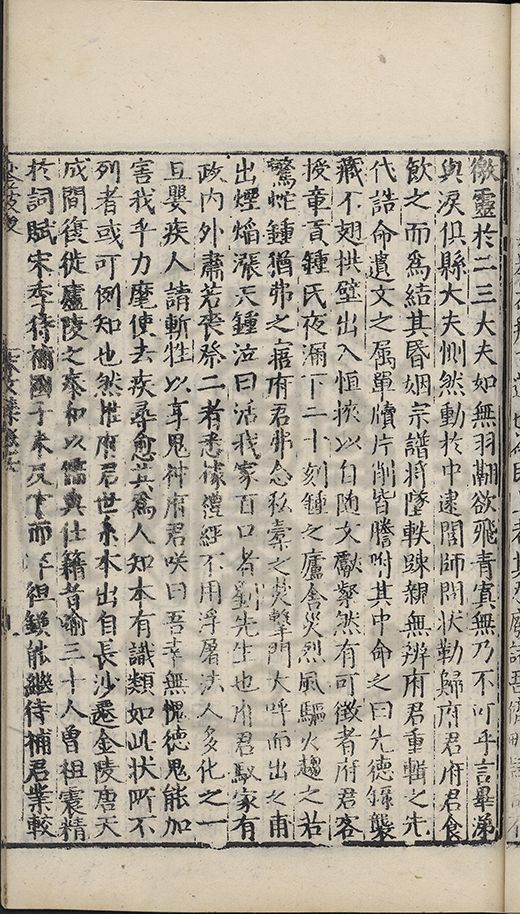 徼靈於二三大夫如無羽翮欲飛青冥無乃不可乎言畢涕
與淚俱縣大夫惻然動於中逮閭師問狀勒歸府君府君食
飲之而爲結其昏姻宗譜將墜軼踈親無辨府君重輯之先
代誥命遺文之属單牘片削皆謄附其中命之曰先德錄襲
藏不翅拱璧出入恒挾以自随文獻粲然有可徵者府君客
授章貢鍾氏夜漏下二十刻鍾之廬舍災烈風驅火趨之若
驚性鍾猶弗之寤府君弗忍私橐之焚擊門大呼而出之甫
出煙焰漲天鍾泣曰活我家百口者劉先生也府君馭家有
政内外肅若喪祭二者悉據禮經不用浮屠法人多化之一
旦嬰疾人請斬牲以享鬼神府君咲曰吾幸無愧德鬼能加
害我乎力麾使去疾尋愈其爲人知本有識類如此狀所不
列者或可例知也然惟府君世系本出自長沙遷金陵唐天
成間復徙廬陵之泰和以儒與仕籍者喻三十人曾祖震精
於詞賦宋季待補國子未及下而卒祖鎮能繼待補君業較